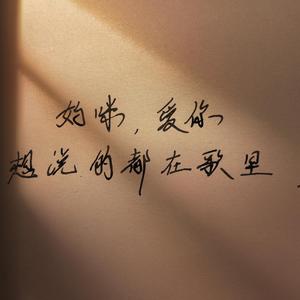 妈咪,爱你
想说的都在歌里